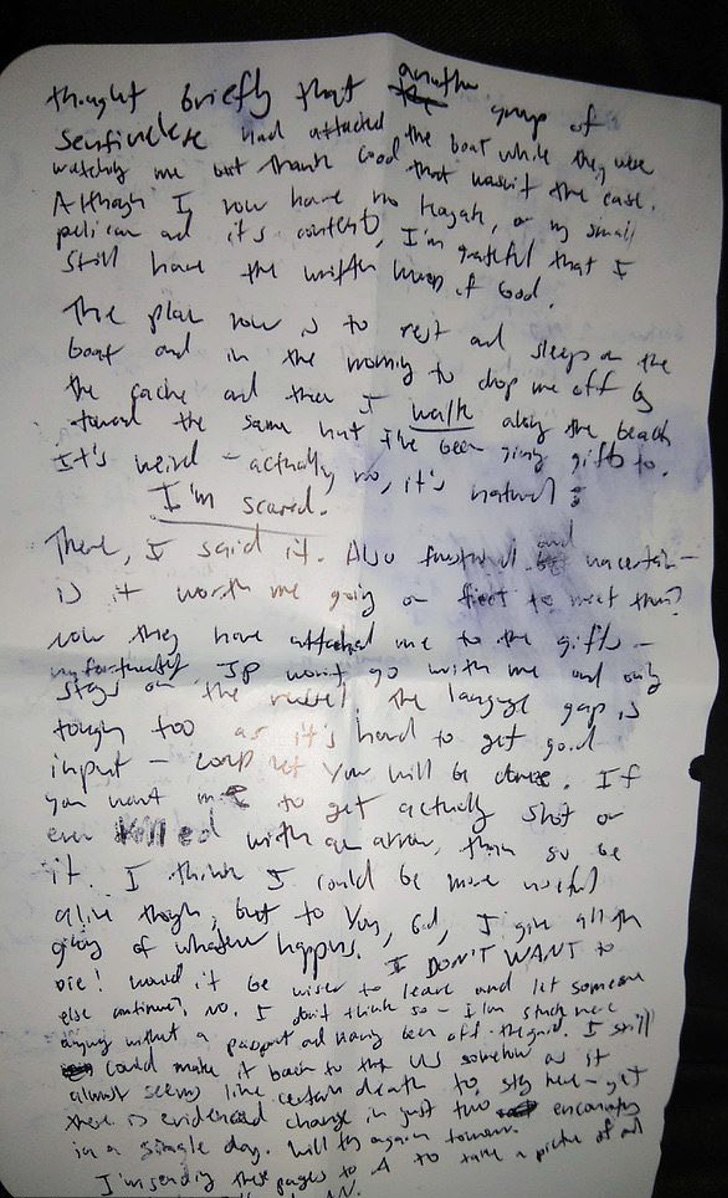 thought briefly that another group of
Sentinelese had attacked the boat while they were
watching me but thank God that wasn't the case.
Although I now have no Kayak, or my small
pelican and it's contents, I'm grateful that I
still have the written Word of God.
The plan now is to rest and sleep on the
boat and in the morning to drop me off by
the cache and then I walk along the beach
toward the same hut I've been giving gifts to.
It's weird - actually no, it's natural :
I'm scared.
There, I said it. Also frustrated and uncertain -
is it worth me going on foot to meet them?
Now they have attached me to the gifts -
unfortunately JP won't go with me and only
stays on the vessel. The language gap is
tough too as it's hard to get good
input - LORD let Your will be done. If
you want me to get actually shot or
even killed with an arrow, then so be
it. I think I could be more useful
alive though, but to You, God, I give all the
glory of whatever happens. I DON'T WANT to
Die! Would it be wiser to leave and let someone
else continue? No. I don't think so - I'm stuck here
anyway without a passport and having been off-the-grid. I still
could make it back to the US somehow as it
almost seems like certain death to stay here - yet
there is evidenced change in just two encounters
in a single day. Will try again tomorrow.
I'm sending these pages to A to take a picture of and